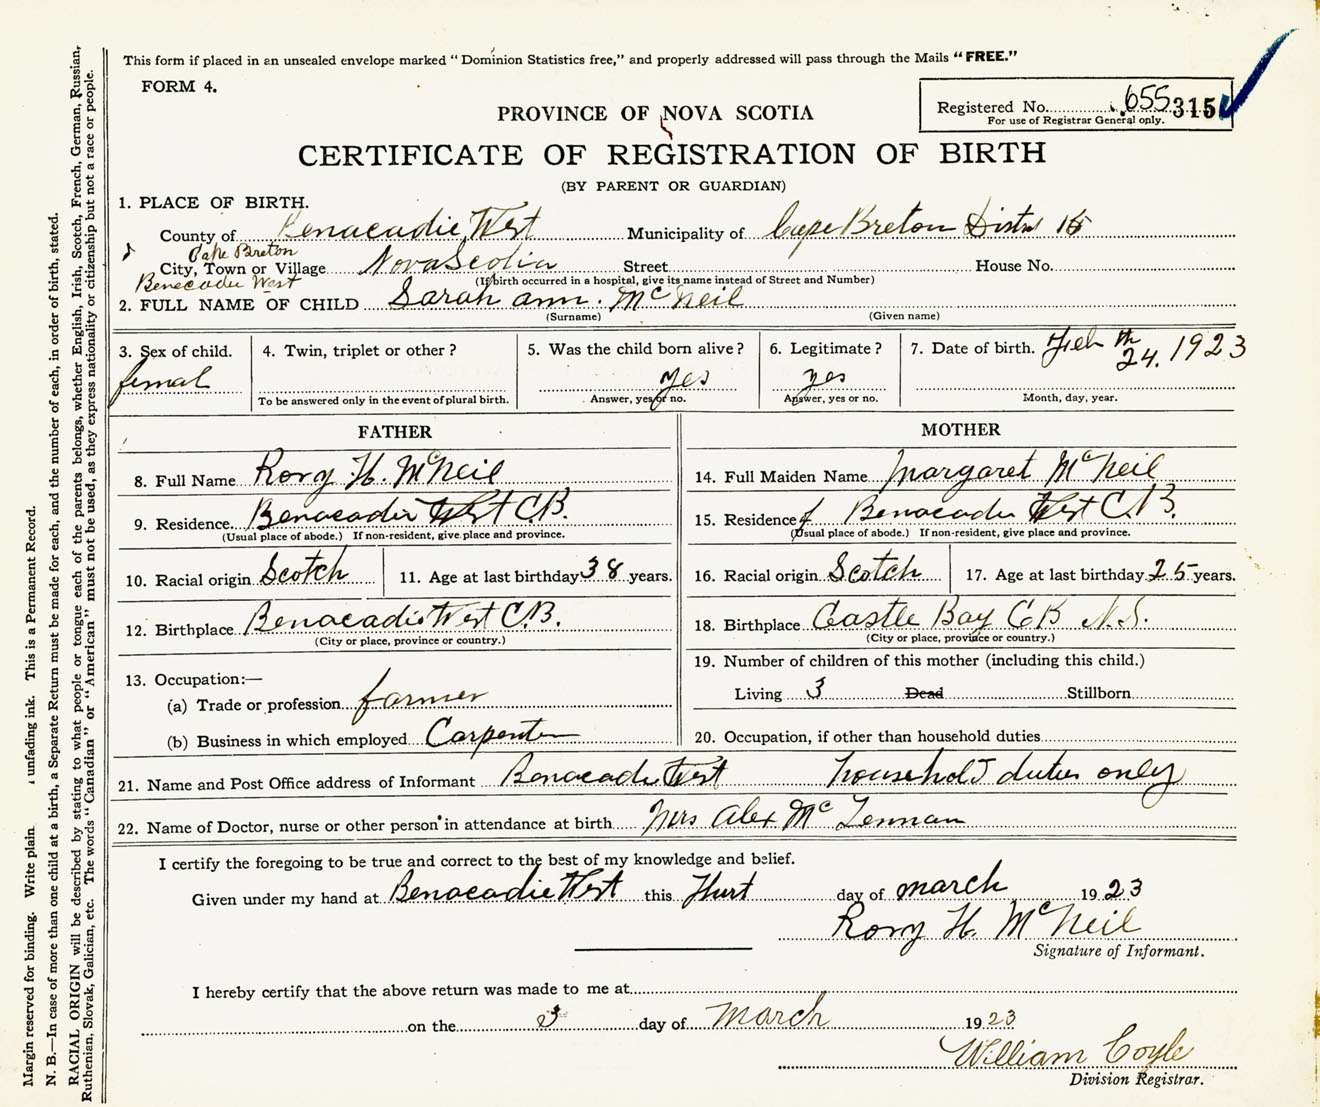 This form if placed in an unsealed envelope marked "Dominion Statistics free," and properly addressed will pass through the Mails "FREE."
FORM 4.
Registered No. 655 315
For use of Registrar General only.
PROVINCE OF NOVA SCOTIA
CERTIFICATE OF REGISTRATION OF BIRTH
(BY PARENT OR GUARDIAN)
1. PLACE OF BIRTH.
County of Benacadie West Municipality of Cape Breton Distr 15
Cape Breton
City, Town or Village Nova Scotia Street House No.
Benecadie West
(If birth occurred in a hospital, give its name instead of Street and Number)
2. FULL NAME OF CHILD Sarah ann. McNeil
(Surname) (Given name)
3. Sex of child. femal
4. Twin, triplet or other?
To be answered only in the event of plural birth.
5. Was the child born alive? yes
Answer, yes or no.
6. Legitimate? yes
Answer, yes or no.
7. Date of birth. Feb 24th. 1923
Month, day, year.
FATHER
8. Full Name Rory H. McNeil
9. Residence. Benacadie West C.B.
(Usual place of abode.) If non-resident, give place and province.
10. Racial origin Scotch
11. Age at last birthday 38 years.
12. Birthplace Benacadie West C.B.
(City or place, province or country.)
13. Occupation:—
(a) Trade or profession farmer
(b) Business in which employed Carpenter
MOTHER
14. Full Maiden Name Margaret McNeil
15. Residence Benacadie West C.B.
(Usual place of abode.) If non-resident, give place and province.
16. Racial origin Scotch
17. Age at last birthday 25 years.
18. Birthplace Castle Bay CB N.S.
(City or place, province or country.)
19. Number of children of this mother (including this child.)
Living 3 Dead Stillborn
20. Occupation, if other than household duties
21. Name and Post Office address of Informant Benacadie West household duties only
22. Name of Doctor, nurse or other person in attendance at birth Mrs Alex McLennan
I certify the foregoing to be true and correct to the best of my knowledge and belief.
Given under my hand at Benacadie West this day of march 1923
Rory H. McNeil
Signature of Informant.
I hereby certify that the above return was made to me at
on the 3 day of March 1923
William Coyle
Division Registrar.
Margin reserved for binding. Write plain unfading ink. This is a Permanent Record.
N. B.—In case of more than one child at a birth, a Separate Return must be made for each, and the number of each, in order of birth, stated.
RACIAL ORIGIN will be described by stating to what people or tongue each of the parents belongs, whether English, Irish, Scotch, French, German, Russian,
Ruthenian, Slovak, Galician, etc. The words "Canadian" or "American" must not be used, as they express nationality or citizenship but not a race or people.